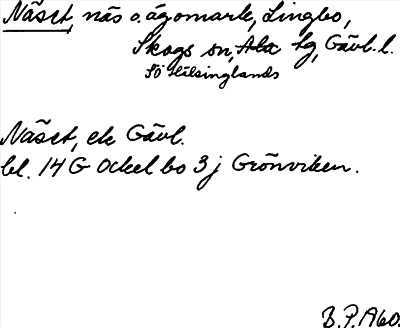 Näset, näs o. ägomark, Lingbo,
Skogs sn, Ala tg, Gävl. l.
Sö Hälsinglands
Näset, ek Gävl.
bl. 14 G Ockelbo 3 j Grönviken.
B.P. A60.